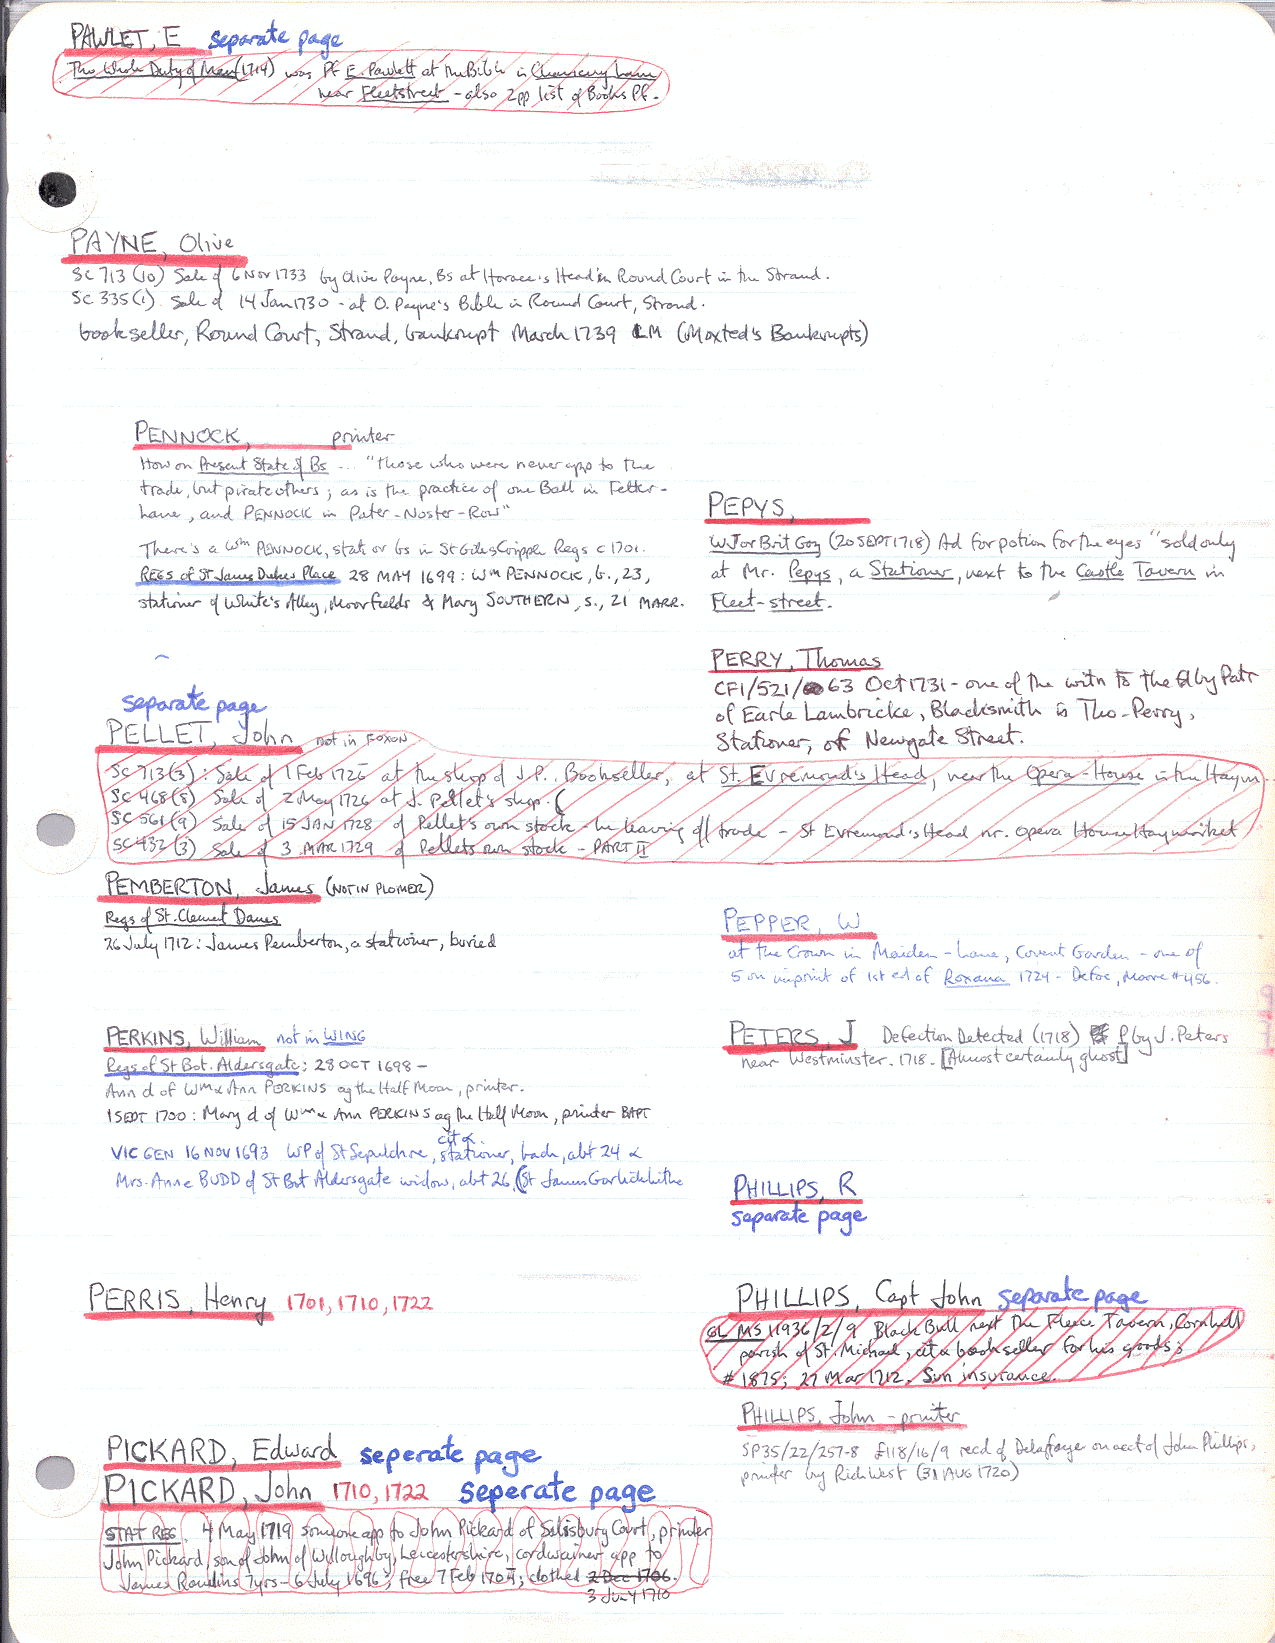 PAWLET, E separate page
The Whole Duty of Man (1714) was Pf E. Pawlett at the Bible in Chancery Lane
near Fleetstreet - also 2pp list of Books Pf.
PAYNE, Olive
SC 713 (10) Sale of 6 Nov 1733 by Olive Payne, Bs at Horace's Head in Round Court in the Strand.
SC 335(1) Sale of 14 Jan 1730 - at O. Payne's Bible in Round Court, Strand.
bookseller, Round Court, Strand, bankrupt March 1739 LM (Moxted's Bankrupts)
PENNOCK, printer
How on Present State of Bs ... "those who were never app to the
trade, but pirate others; as is the practice of one Ball in Fetter-
Lane, and PENNOCK in Pater-Noster-Row"
There's a Wm PENNOCK, stat or bs in St Giles Cripple Regs c 1701.
REGS of St James Dukes Place 28 MAY 1699: Wm PENNOCK, b., 23,
stationer of White's Alley, Moorfields & Mary SOUTHERN, s., 21 MARR.
PEPYS,
WJ or Brit Gaz (20 SEPT 1718) Ad for potion for the eyes "sold only
at Mr. Pepys, a Stationer, next to the Castle Tavern in
Fleet-street.
PERRY, Thomas
CF1/521/ 63 Oct 1731 - one of the witn to the by Patr
of Earle Lambricke, Blacksmith is Tho-Perry,
Stationer, of Newgate Street.
separate page
PELLET, John not in FOXON
SC 713(3): Sale of 1 Feb 1726 at the shop of J.P. Bookseller, at St. Evremond's Head, near the Opera-House in the Haym...
SC 468(8) Sale of 2 May 1726 at J. Pellet's shop.
SC 561(9) Sale of 15 JAN 1728 of Pellet's own stock - he leaving off trade - St Evremond's Head nr. Opera House Haymarket
SC 432 (3) Sale of 3 MAR 1729 of Pellets own stock - PART II
PEMBERTON, James (NOT IN PLOMER)
Regs of St. Clement Danes
26 July 1712: James Pemberton, a stationer, buried
PEPPER, W
at the Crown in Maiden-lane, Covent Garden - one of
5 on imprint of 1st ed of Roxana 1724 - Defoe, Moore #456.
PERKINS, William not in WING
Regs of St Bot. Aldersgate: 28 OCT 1698 -
Ann d of Wm & Ann PERKINS ag the Half Moon, printer.
1 SEPT 1700: Mary d of Wm & Ann PERKINS ag the Half Moon, printer BAPT
VIC GEN 16 NOV 1693 WP of St Sepulchre, cit & stationer, bach, abt 24 &
Mrs. Anne BUDD of St Bot Aldersgate widow, abt 26, (St James Garlickhithe
PETERS, J Defection Detected (1718) P by J. Peters
near Westminster. 1718. [Almost certainly ghost]
PHILLIPS, R
separate page
PERRIS, Henry 1701, 1710, 1722
PHILLIPS, Capt John separate page
GL MS 11936/2/9 Black Bull next The Fleece Tavern, Cornhill
parish of St. Michael, cit & bookseller for his goods;
# 1875; 27 Mar 1712. Sun insurance.
PHILLIPS, John - printer
SP35/22/257-8 £118/16/9 recd of Delafaye on acct of John Phillips,
printer by Rich West (31 AUG 1720)
PICKARD, Edward seperate page
PICKARD, John 1710, 1722 seperate page
STAT REG. 4 May 1719 someone app to John Pickard of Salisbury Court, printer
John Pickard, son of John of Willoughby, Leicestershire, cordwainer app to
James Rawlins 7yrs - 6 July 1696; free 7 Feb 1704; clothed 2 Dec 1706.
3 July 1710